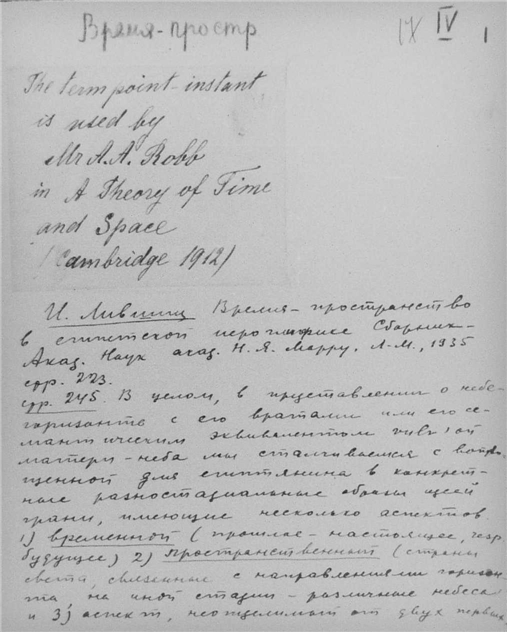 Время-простр
IX IV 1
The term point-instant
is used by
Mr A.A. Robb
in A Theory of Time
and Space
(Cambridge 1912)
И. Лившиц Время-пространство
в египетской иероглифике Сборник-
Акад. Наук акад. Н.Я. Марру, Л-М., 1935
стр. 223.
стр. 245. В целом, в представлении о небе-
горизонте с его вратами или его се-
мантическим эквивалентом
матери-неба мы сталкиваемся с вопло-
щенной для египтянина в конкрет-
ные разностадиальные образы идеей
грани, имеющие несколько аспектов.
1) временной (прошлое-настоящее,
будущее) 2) пространственный (страны
света, связанные с направлениями горизон-
та на иной стадии - различные небеса
и 3) аспект, неотделимый от двух первых